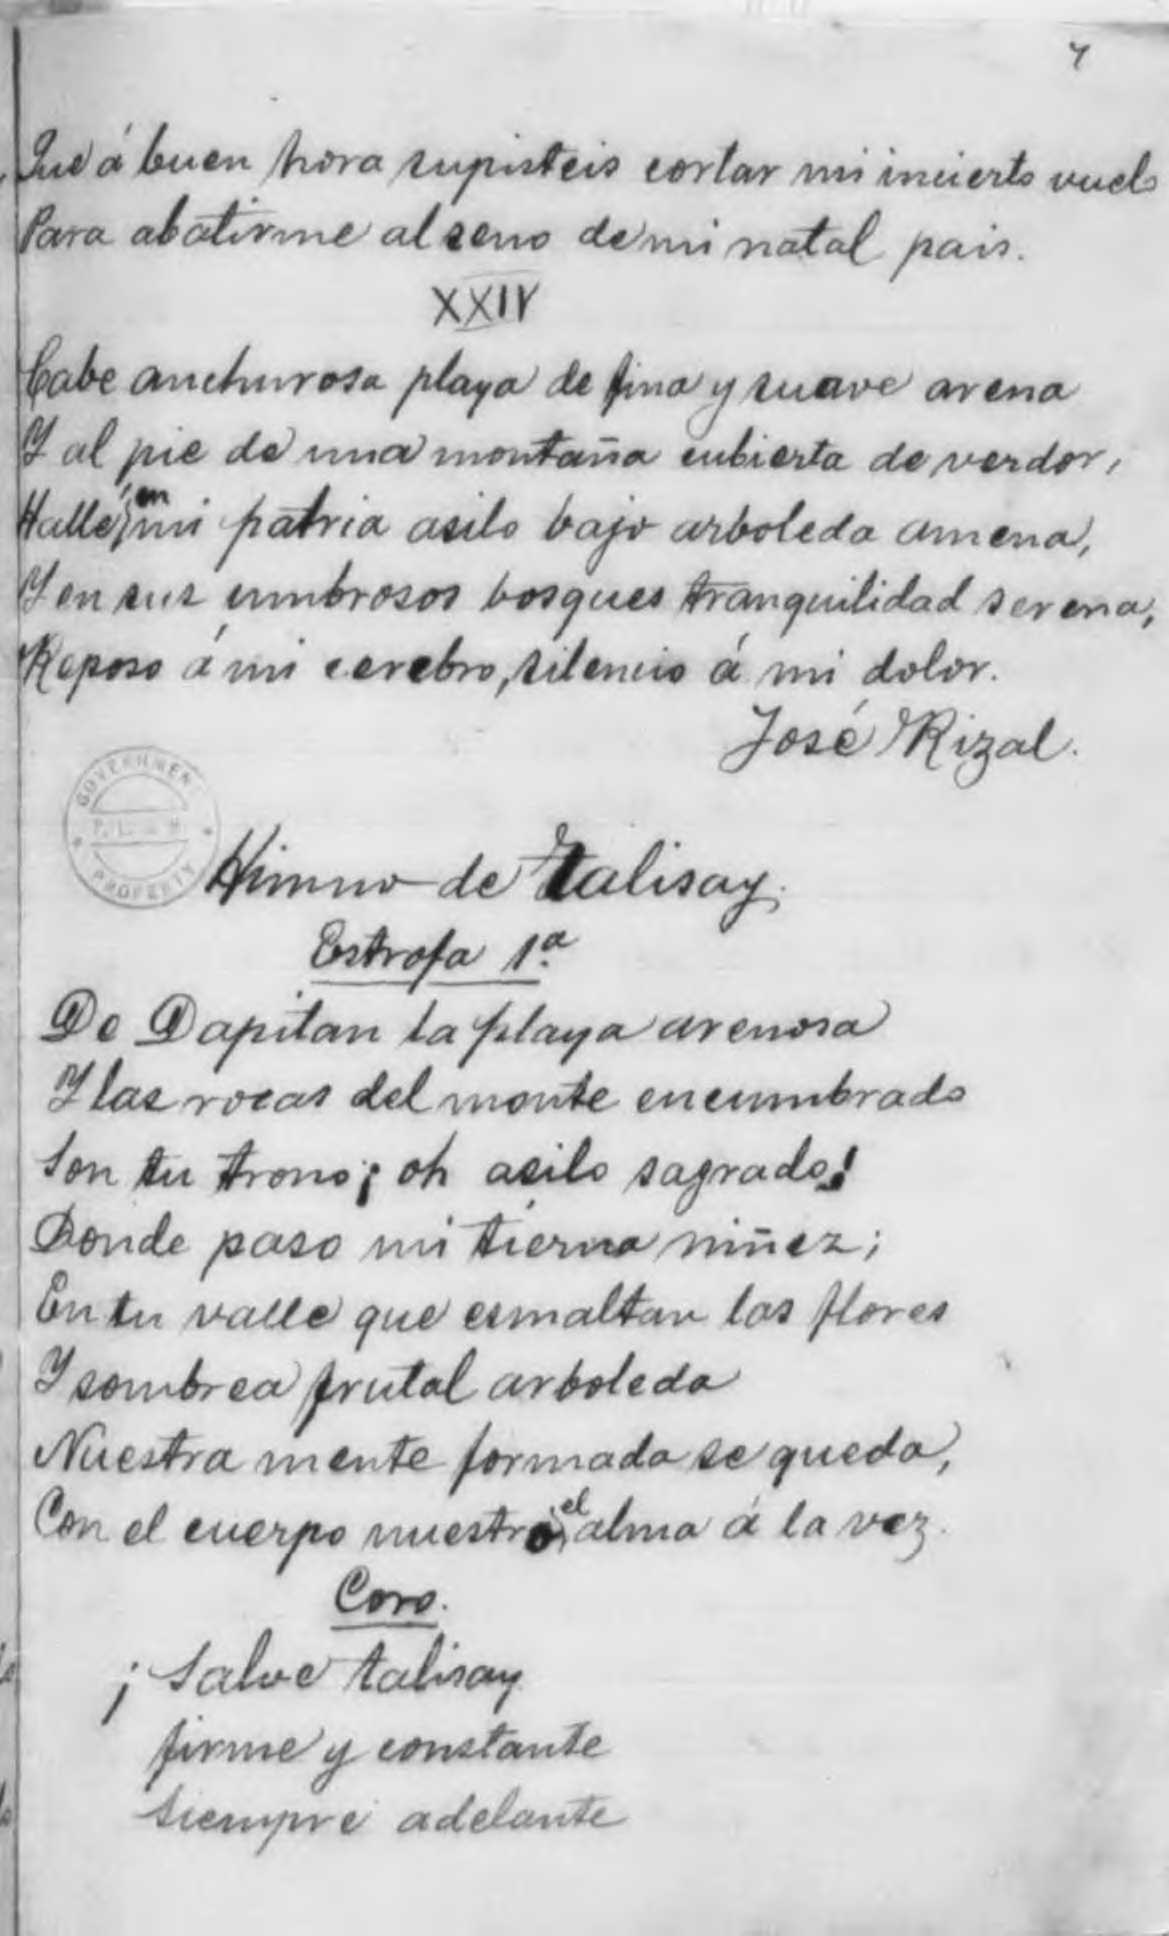 7
Que á buen hora supisteis cortar mi incierto vuelo
Para abatirme al seno de mi natal pais.
XXIV
Cabe anchurosa playa de fina y suave arena
Y al pie de una montaña cubierta de verdor,
Hallé en mi patria asilo bajo arboleda amena,
Y en sus umbrosos bosques tranquilidad serena,
Reposo á mi cerebro, silencio á mi dolor.
José Rizal.
GOVERNMENT
PROPERTY
Himno de Talisay.
Estrofa 1.ª
De Dapitan la playa arenosa
Y las rocas del monte encumbrado
Son tu trono ¡oh asilo sagrado!
Donde paso mi tierna niñez;
En tu valle que esmaltan las flores
Y sombrea frutal arboleda
Nuestra mente formada se queda,
Con el cuerpo nuestro, el alma á la vez.
Coro.
¡Salve talisay
firme y constante
siempre adelante